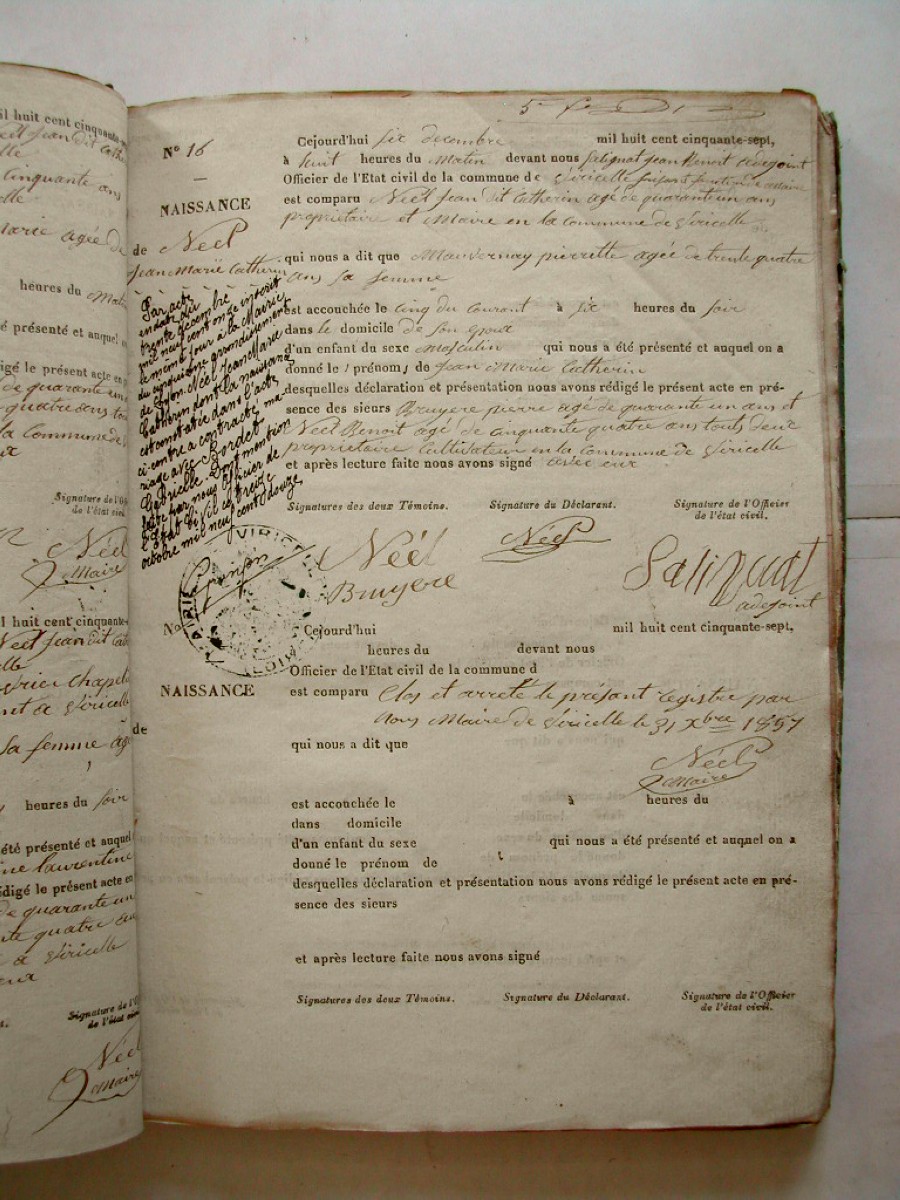 il huit cent cinquante-
Néel Jean dit Cathe
elle
cinquante ans
elle
Marie agée de
heures du Matin
é présenté et auquel on
é le présent acte en p
de quarante un
quatre ans tous
la Commune de
ux
Signature de l'Of
de l'état civil.
Néel
Maire
l huit cent cinquante-
Néel Jean dit Cath
elle
nt a Viricelle
sa femme agé
heures du soir
été présenté et auquel
ine laurentine
édigé le présent acte en
de quarante un
nte quatre ans
a Viricelle
eux
Signature de l'Of
de l'état civil
Néel
Maire
N° 16
NAISSANCE
de Néel
Jean Marie Catherin
Par acte
en date du
trente décembre
mil neuf cent onze inscrit
le même jour à la Mairie
du cinquième arrondissement
de Lyon, Néel Jean Marie
Catherin dont la naissance
est constatée dans l'acte
ci-contre a contracté ma-
riage avec Bordet
Gabrielle. Dont mention
faite par nous Officier de
l'Etat Civil ce treize
octobre mil neuf cent douze
Cejourd'hui six décembre mil huit cent cinquante-sept,
à huit heures du Matin devant nous Salignat Jean Benoit adejoint
Officier de l'Etat civil de la commune de Viricelle faisant fonction de maire
est comparu Néel Jean dit Catherin agé de quarante un ans
propriétaire et Maire en la commune de Viricelle
qui nous a dit que Mauvernay pierrette agée de trente quatre
ans sa femme
est accouchée le cinq du courant à six heures du soir
dans le domicile de son epoux
d'un enfant du sexe masculin qui nous a été présenté et auquel on a
donné le s prénom s de Jean Marie Catherin
desquelles déclaration et présentation nous avons rédigé le présent acte en pré-
sence des sieurs Bruyere pierre agé de quarante un ans et
Néel Benoit agé de cinquante quatre ans touts deux
propriétaire cultivateur en la commune de Viricelle
et après lecture faite nous avons signé avec eux
Signatures des deux Témoins. Signature du Déclarant. Signature de l'Officier
de l'état civil.
Néel
Bruyere
Néel
Salignat
adejoint
N°
NAISSANCE
de
Cejourd'hui mil huit cent cinquante-sept,
heures du devant nous
Officier de l'Etat civil de la commune d
est comparu Clos et arrété le présant registre par
nous Maire de Viricelle le 31 Xbre 1857
Néel
Maire
qui nous a dit que
est accouchée le à heures du
dans domicile
d'un enfant du sexe qui nous a été présenté et auquel on a
donné le prénom de
desquelles déclaration et présentation nous avons rédigé le présent acte en pré-
sence des sieurs
et après lecture faite nous avons signé
Signatures des deux Témoins. Signature du Déclarant. Signature de l'Officier
de l'état civil.